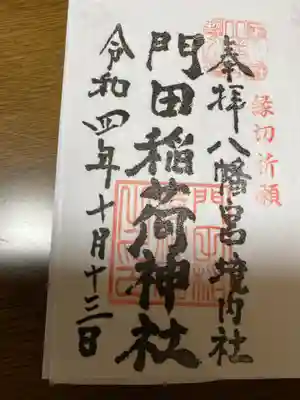 縁切祈願
奉拝八幡宮境内社
門田稲荷神社
令和四年十月十三日